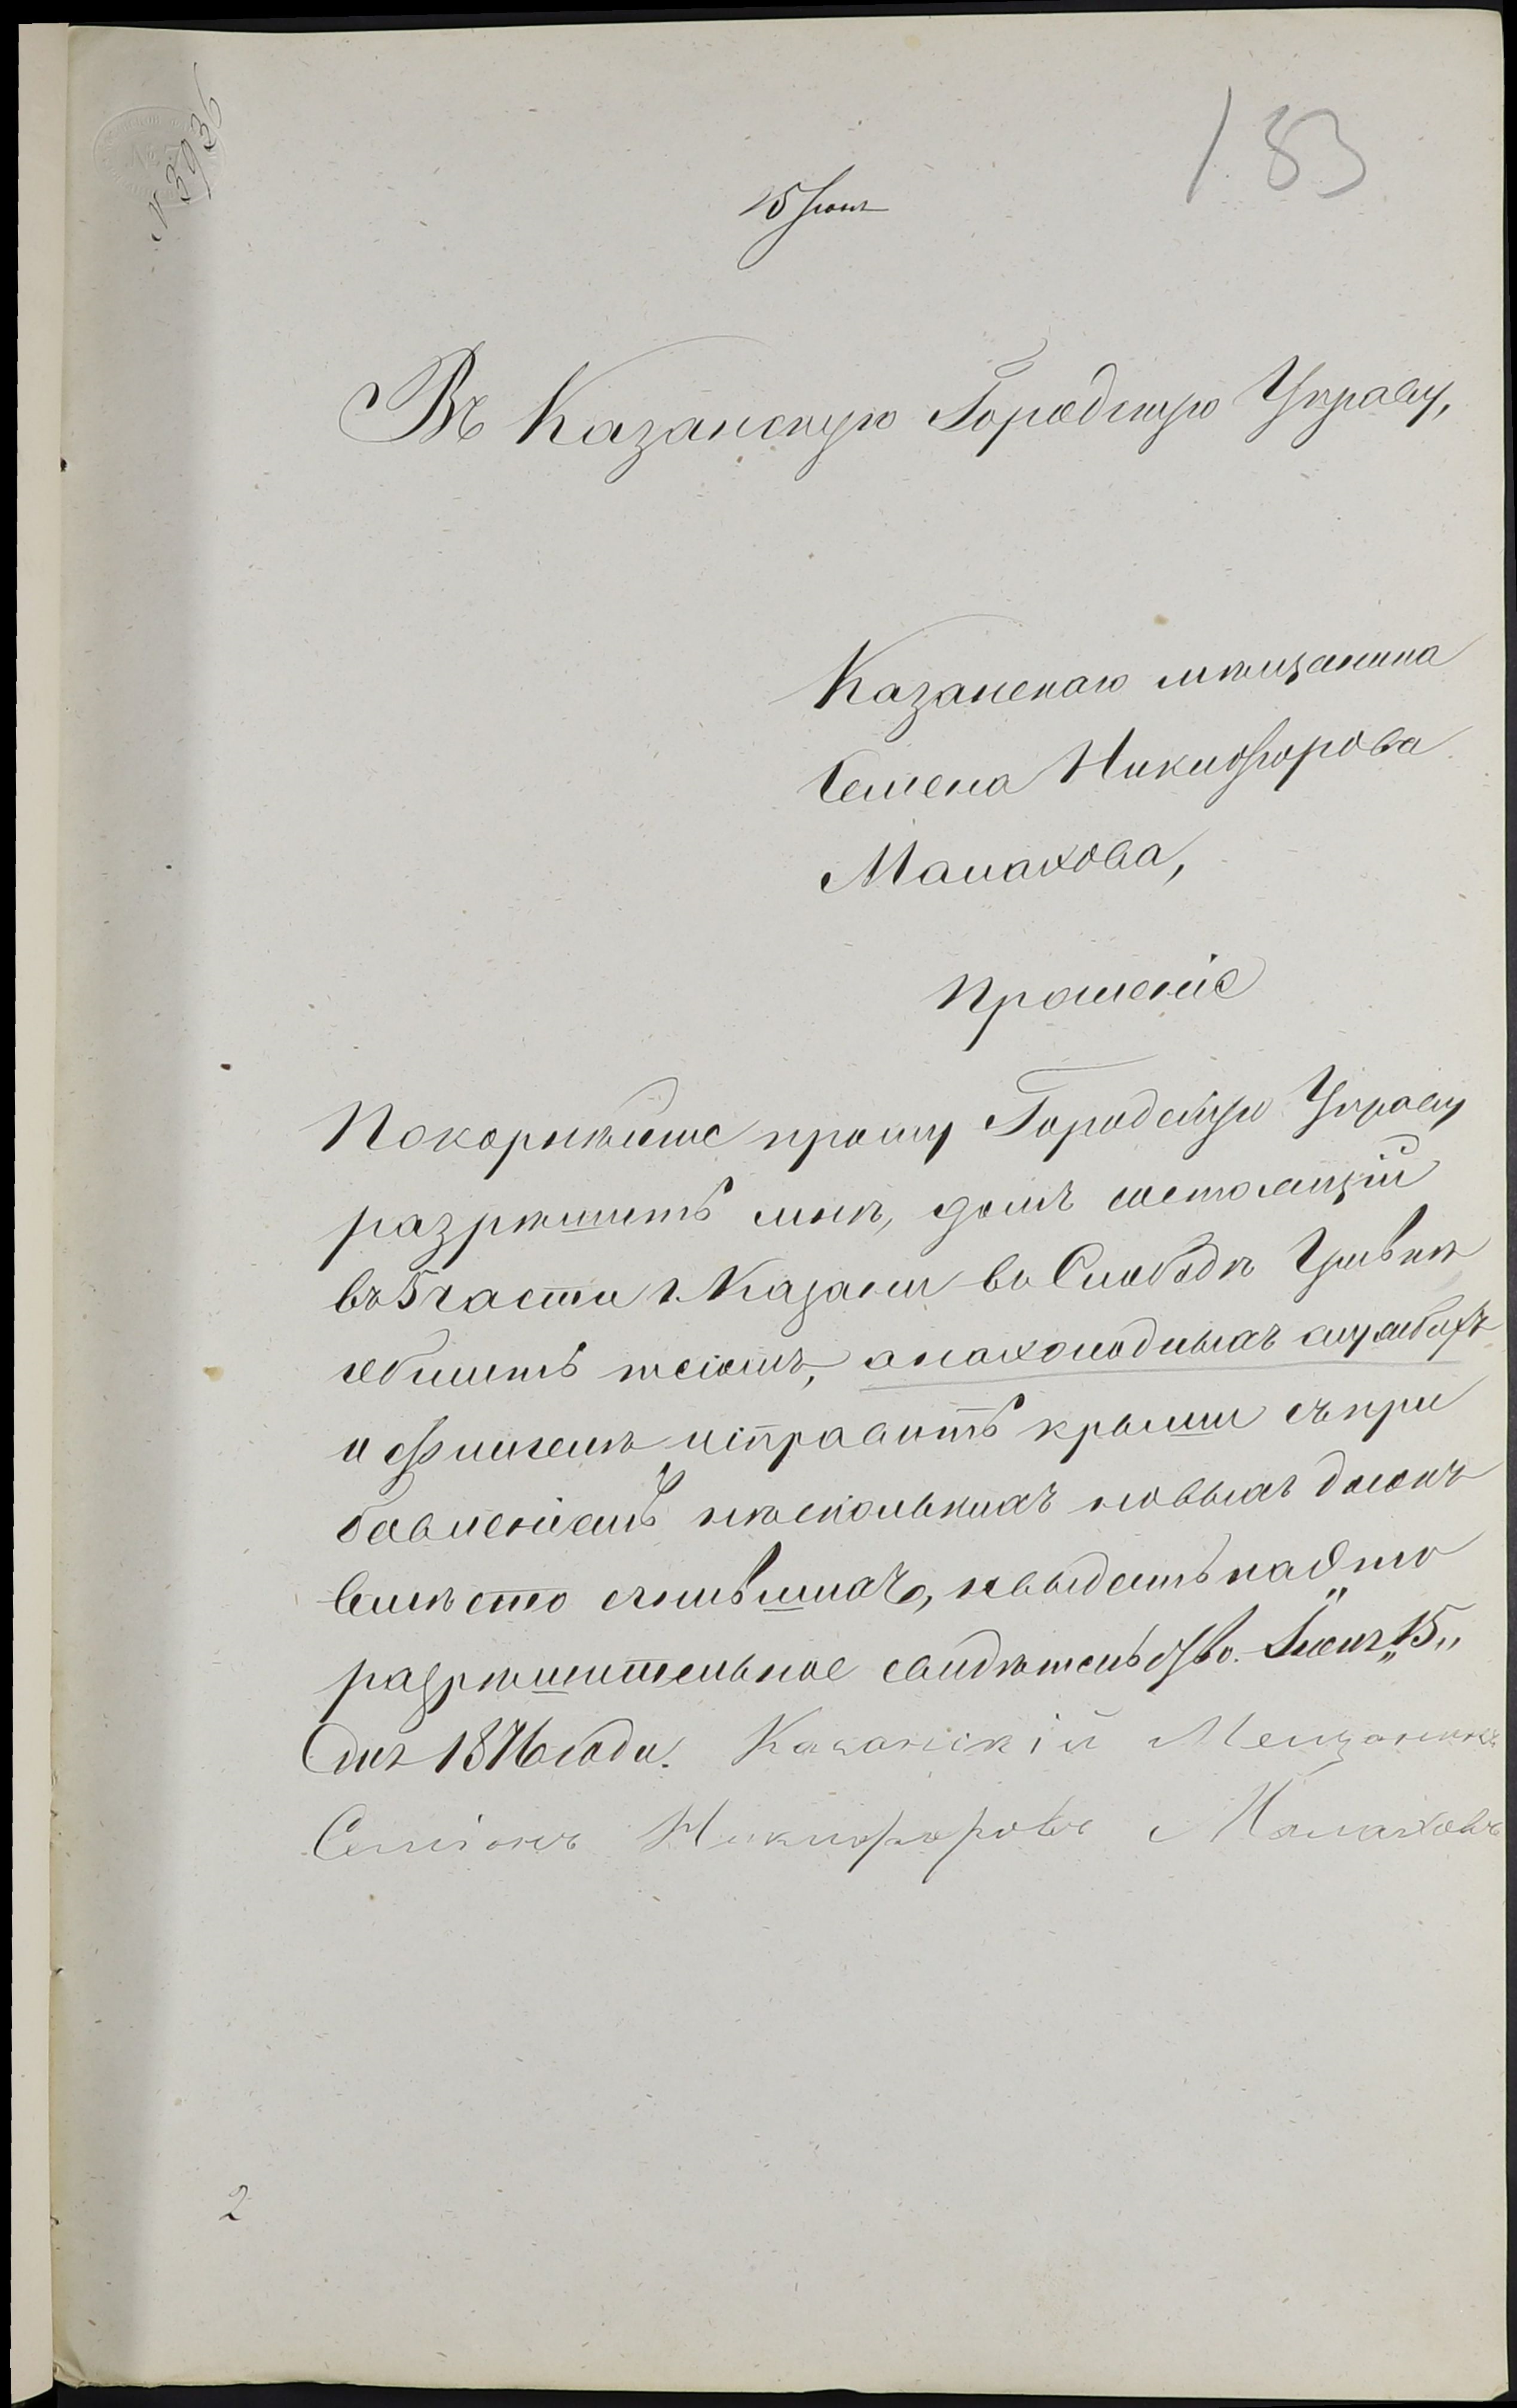 N 3936
183
15 Іюня
Въ Казанскую Городскую Управу,
Казанскаго мѣщанина
Семена Никифорова
Малахова,
Прошеніе
Покорнѣйше прошу Городскую Управу
разрѣшить мнѣ, домъ состоящій
въ 5 части г. Казани въ Слободѣ
обшить тесомъ, а на холодныхъ службахъ
и флигелѣ исправить крыши съ при
бавленіемъ нѣсколькихъ новыхъ досокъ
вмѣсто сгнившихъ, и выдать на это
разрѣшительное свидѣтельство. Іюня „15„
дня 1876 года. Казанскій Мещанинъ
Семіонъ Никифоровъ Малаховъ
2